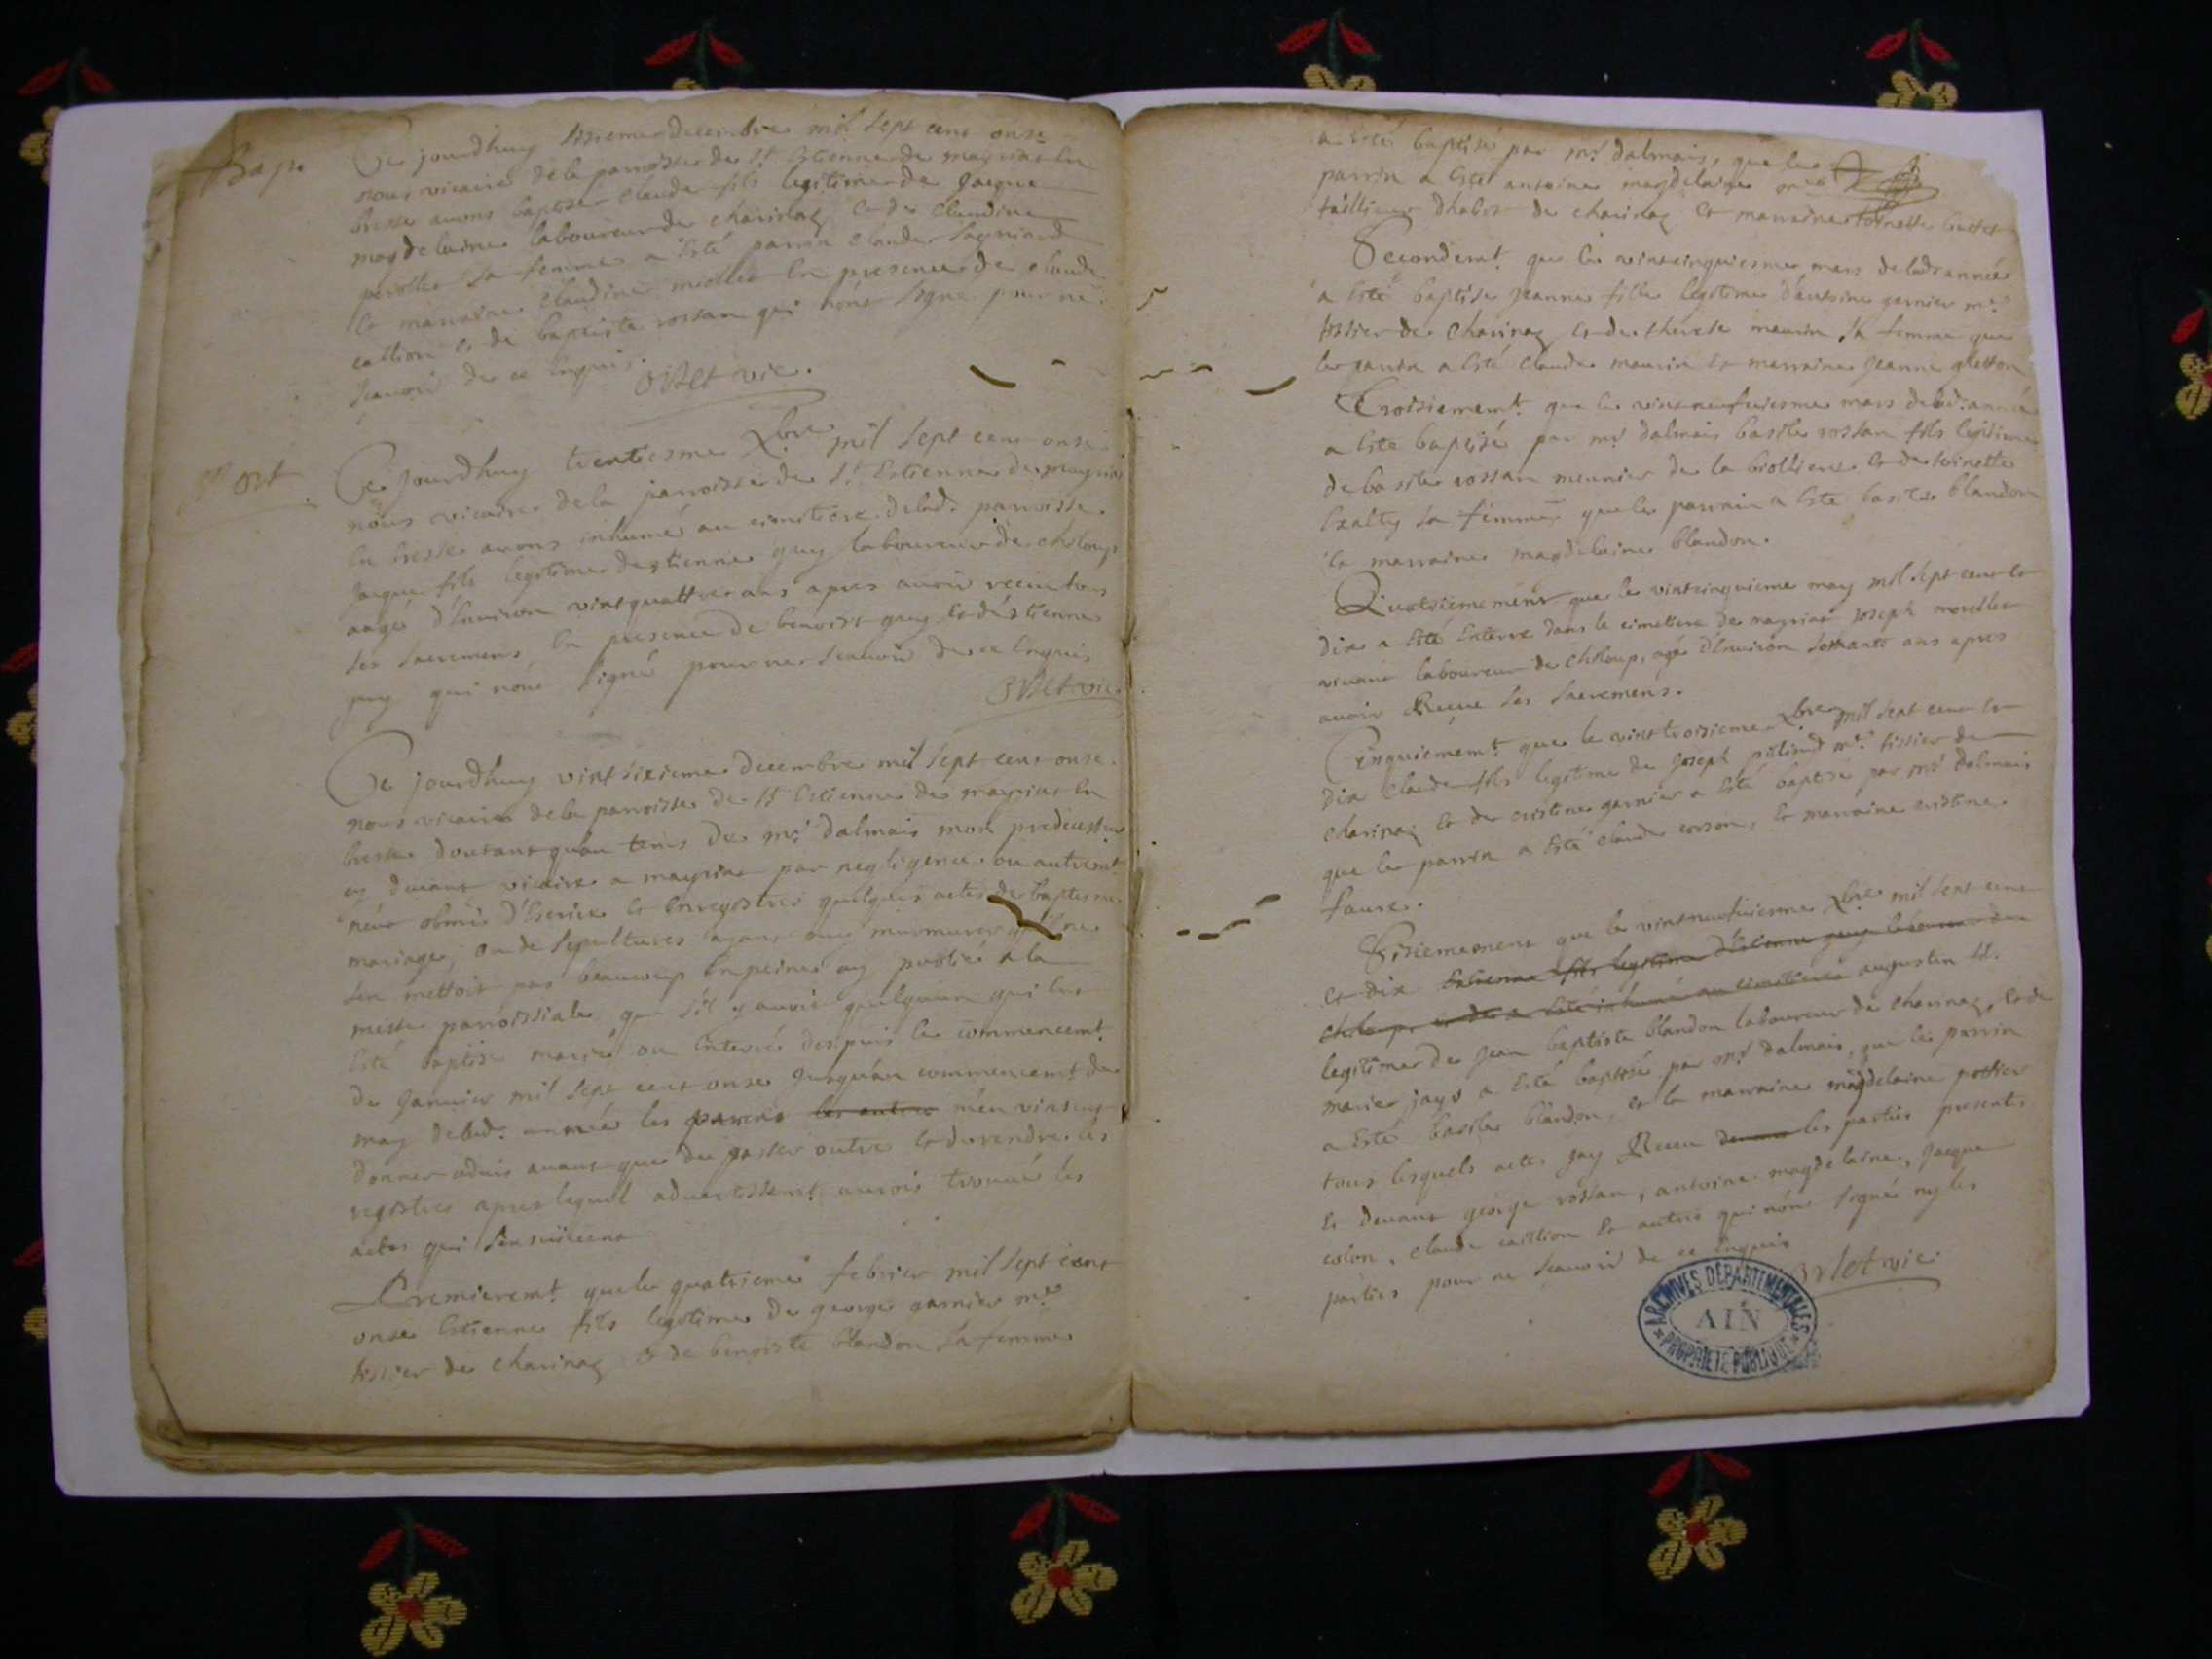 Bap.
Ce jourdhuy sixieme decembre mil sept cens onze
nous vicaire de la parroisse de St Estienne de mayriat en
bresse avons baptisé claude fils legitime de Jacque
magdelaine laboureur de charinaz et de claudine
sa femme a esté parrin claude
et marraine claudine miollet en presence de claude
caltion et de baptiste rossan qui nont signe pour ne
scauoir de ce enquis.
Orset vic.
Mort
Ce jourdhuy trentiesme Xbre mil sept cens onze
nous vicaire de la parroisse de St Estienne de mayriat
en bresse avons inhumé au cimitiere de lad. parroisse
Jacque fils legitime destienne guy laboureur de chiloup
aagé d'enuiron vint quattre ans apres auoir receu tous
ses sacremens en presence de benoist guy et d'estienne
guy qui nont signé pour ne scauoir de ce enquis
Orset vic.
Ce jourdhuy vint sixieme decembre mil sept cens onze
nous vicaire de la parroisse de St Estienne de mayriat en
bresse doutant quau tems de mr dalmais mon predecesseur
cy deuant vicaire a mayriat par negligence ou autremt
n'eut obmis d'escrire et enregistrer quelques actes de baptesme
mariage, ou de sepultures ayant ouy murmurer
sen mettoit pas beaucoup en peine ay publié a la
messe parroissiale que s'il y auoit quelquun qui eut
esté baptisé marié ou enterré despuis le commencemt
de Januier mil sept cent onze Jusqu'au commencemt de
may de lad. année les parens les autres m'en vinsent
donner aduis auant que de passer outre et de rendre ces
registres apres lequel aduertissemt auois trouué les
actes qui sensuivent
Premieremt que le quatrieme febvrier mil sept cent
onze Estienne fils legitime de george garnier mre
tissier de charinaz et de benoiste blandon sa femme
a esté baptisé par mr dalmais, que le
parrin a esté antoine magdelaine mre
taillieur dhabit de charinaz et marraine toinette
Secondemt que le vintcinquiesme mars de lad. année
a esté baptisé jeanne fille legitime d'antoine garnier mre
tissier de charinaz et de therese maurin sa femme que
le parrin a esté claude maurin et marraine jeanne gletton
Troisiememt que le vint neufuiesme mars de lad. année
a esté baptisé par mr dalmais basile rossan fils legitime
de basile rossan meunier de la biolliere et de toinette
sa femme que le parrain a esté basile blandon
la marraine magdelaine blandon.
Quatriememens que le vintcinquieme may mil sept cent et
dix a esté enterré dans le cimetiere de mayriat joseph
viuant laboureur de chiloup, agé d'enuiron soixante ans apres
auoir Receu ses sacremens.
Cinquiememt que le vint troisieme Xbre mil sept cent et
dix claude fils legitime de joseph mre tissier de
charinaz et de cristine garnier a esté baptisé par mr dalmais
que le parrin a esté claude, et marraine cristine
faure.
Sixiememens que le vintneufuiesme Xbre mil sept cens
et dix Estienne fils legitime d'Estienne guy laboureur de
chiloup, et de a esté inhumé au cimetiere augustin fi.
legitime de jean baptiste blandon laboureur de charinaz, et de
marie jays a esté baptisé par mr dalmais, que le parrin
a esté basile blandon, et la marraine magdelaine
tous lesquels actes jay Receu deuant les parties presentes
et deuant george rossan, antoine magdelaine, jacque
colon, claude caltion et autres qui n'ont signé ny les
parties pour ne scauoir de ce enquis
Orset vic.
ARCHIVES DÉPARTEMENTALES
AIN
PROPRIÉTÉ PUBLIQUE